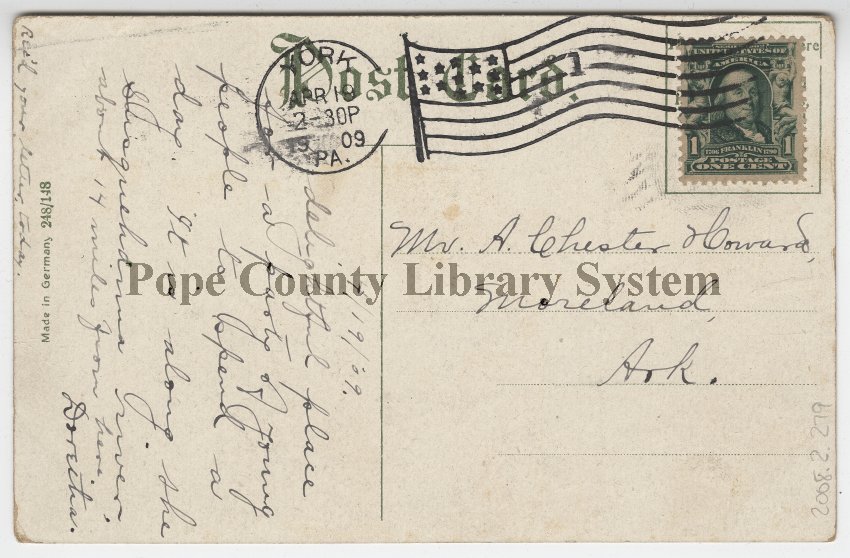 Post Card.
YORK
APR 19
2-30P
19 09
PA.
1
UNITED STATES OF
AMERICA
1706 FRANKLIN 1790
POSTAGE
1 ONE CENT 1
4/19/'09.
delightful place
for a party of young
people to spend a
day. It is along the
Susquehanna river
about 14 miles from here.
Doretha.
Rec'd your letter today.
Made in Germany 248/148
Mr. A. Chester Howard,
Moreland,
Ark.
Pope County Library System
2008.2.279